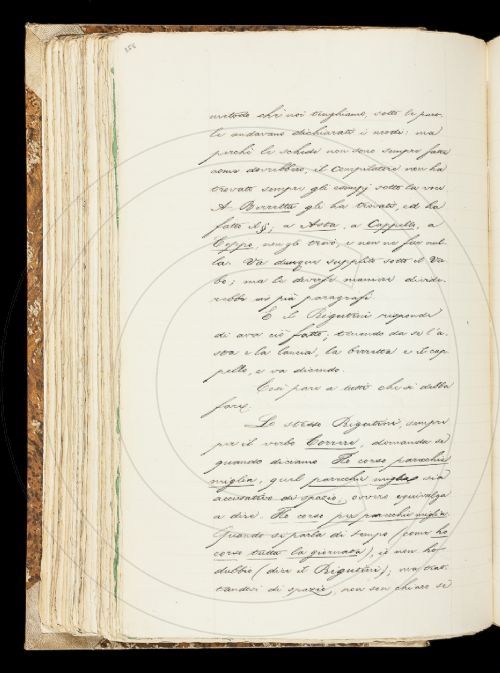 metodo che noi tenghiamo, sotto le paro-
le andavano dichiarati i modi: ma
perchè le schede non sono sempre fatte
come dovrebbero, il Compilatore non ha
trovato sempre gli esempj sotto la voce
A Berretta gli ha trovati, ed ha
fatto il §; a Asta, a Cappello, a
Ceppo, non gli trovò, e non ne fece nul-
la. Va dunque supplito sotto il Ver-
bo; ma le diverse maniere divide-
rebbe in più paragrafi.
E il Rigutini risponde
di aver ciò fatto, ponendo da se l'a-
sta e la lancia, la berretta e il cap-
pello, e va dicendo.
Così pare a tutti che si debba
fare.
Lo stesso Rigutini, sempre
per il verbo Correre, domanda se
quando diciamo Ho corso parecchie
miglia, quel parecchie miglia sia
accusativo di spazio, ovvero equivalga
a dire: Ho corso per parecchie miglia.
Quando si parla di tempo (come ho
corso tutta la giornata), io non ho
dubbio (dice il Rigutini); ma trat-
tandosi di spazio, non son chiaro se